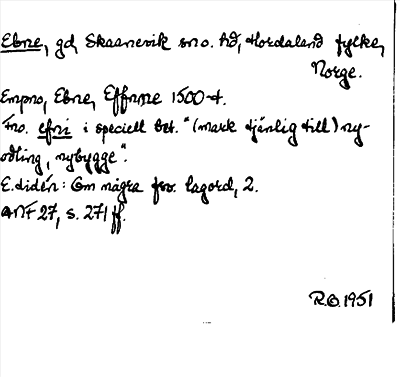 Ebne, gd, Skaanevik sno. hd, Hordaland fylke,
Norge.
Empno, Ebne, Effnne 1500-t.
Fno. efni i speciell bet. "(mark tjänlig till) ny-
odling, nybygge".
E. Lidén: Om några fno. lagord, 2.
ANF 27, s. 271 ff.
R.O. 1951